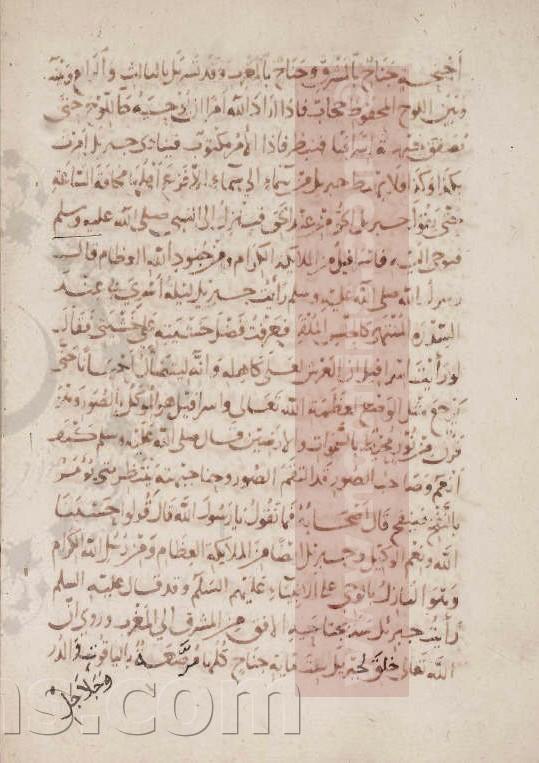 أجنحته جناح بالمشرق وجناح بالمغرب وقد تسربل بالثالث والرابع وبينه
وبين اللوح المحفوظ حجاب فاذا أراد الله أمرا ان اللوح حتى
فاذا الأمر مكتوب فينادي جبريل أمرت
بكذا وكذا فلا يهبط جبريل من سماء الى سماء الا فزع أهلها مخافة الساعة
حتى يقول جبريل الحق من عند الحق فينزل الى النبي صلى الله عليه وسلم
فيوحي اليه فاسرافيل من الملائكة الكرام ومن جنود الله العظام قال
رسول الله صلى الله عليه وسلم رأيت جبريل ليلة أسري بنا عند
السدرة المنتهى كالحلس الملقى فعرفت فضل خشيته على خشيتي فقال
لو رأيت اسرافيل ان العرش لعلى كاهله وانه ليتضاءل أحيانا حتى
يرجع مثل الوصع لعظمة الله تعالى واسرافيل هو الموكل بالصور وهو
قرن من نور محيط بالسموات والارضين قال صلى الله عليه وسلم كيف
أنعم وصاحب الصور قد التقم الصور وحنا جبهته ينتظر متى يؤمر
بالنفخ فينفخ قال أصحابه فما تقول يا رسول الله قال قولوا حسبنا
الله ونعم الوكيل وجبريل أيضا من الملائكة العظام ومن رسل الله الكرام
وهو النازل بالوحي على الانبياء عليهم السلام وقد قال عليه السلم
رأيت جبريل سد بجناحيه الافق من المشرق الى المغرب وروي أن
الله تعالى خلق لجبريل ستمائة جناح كلها مرصعة بالياقوت والدر
وجلاجل
ns.com